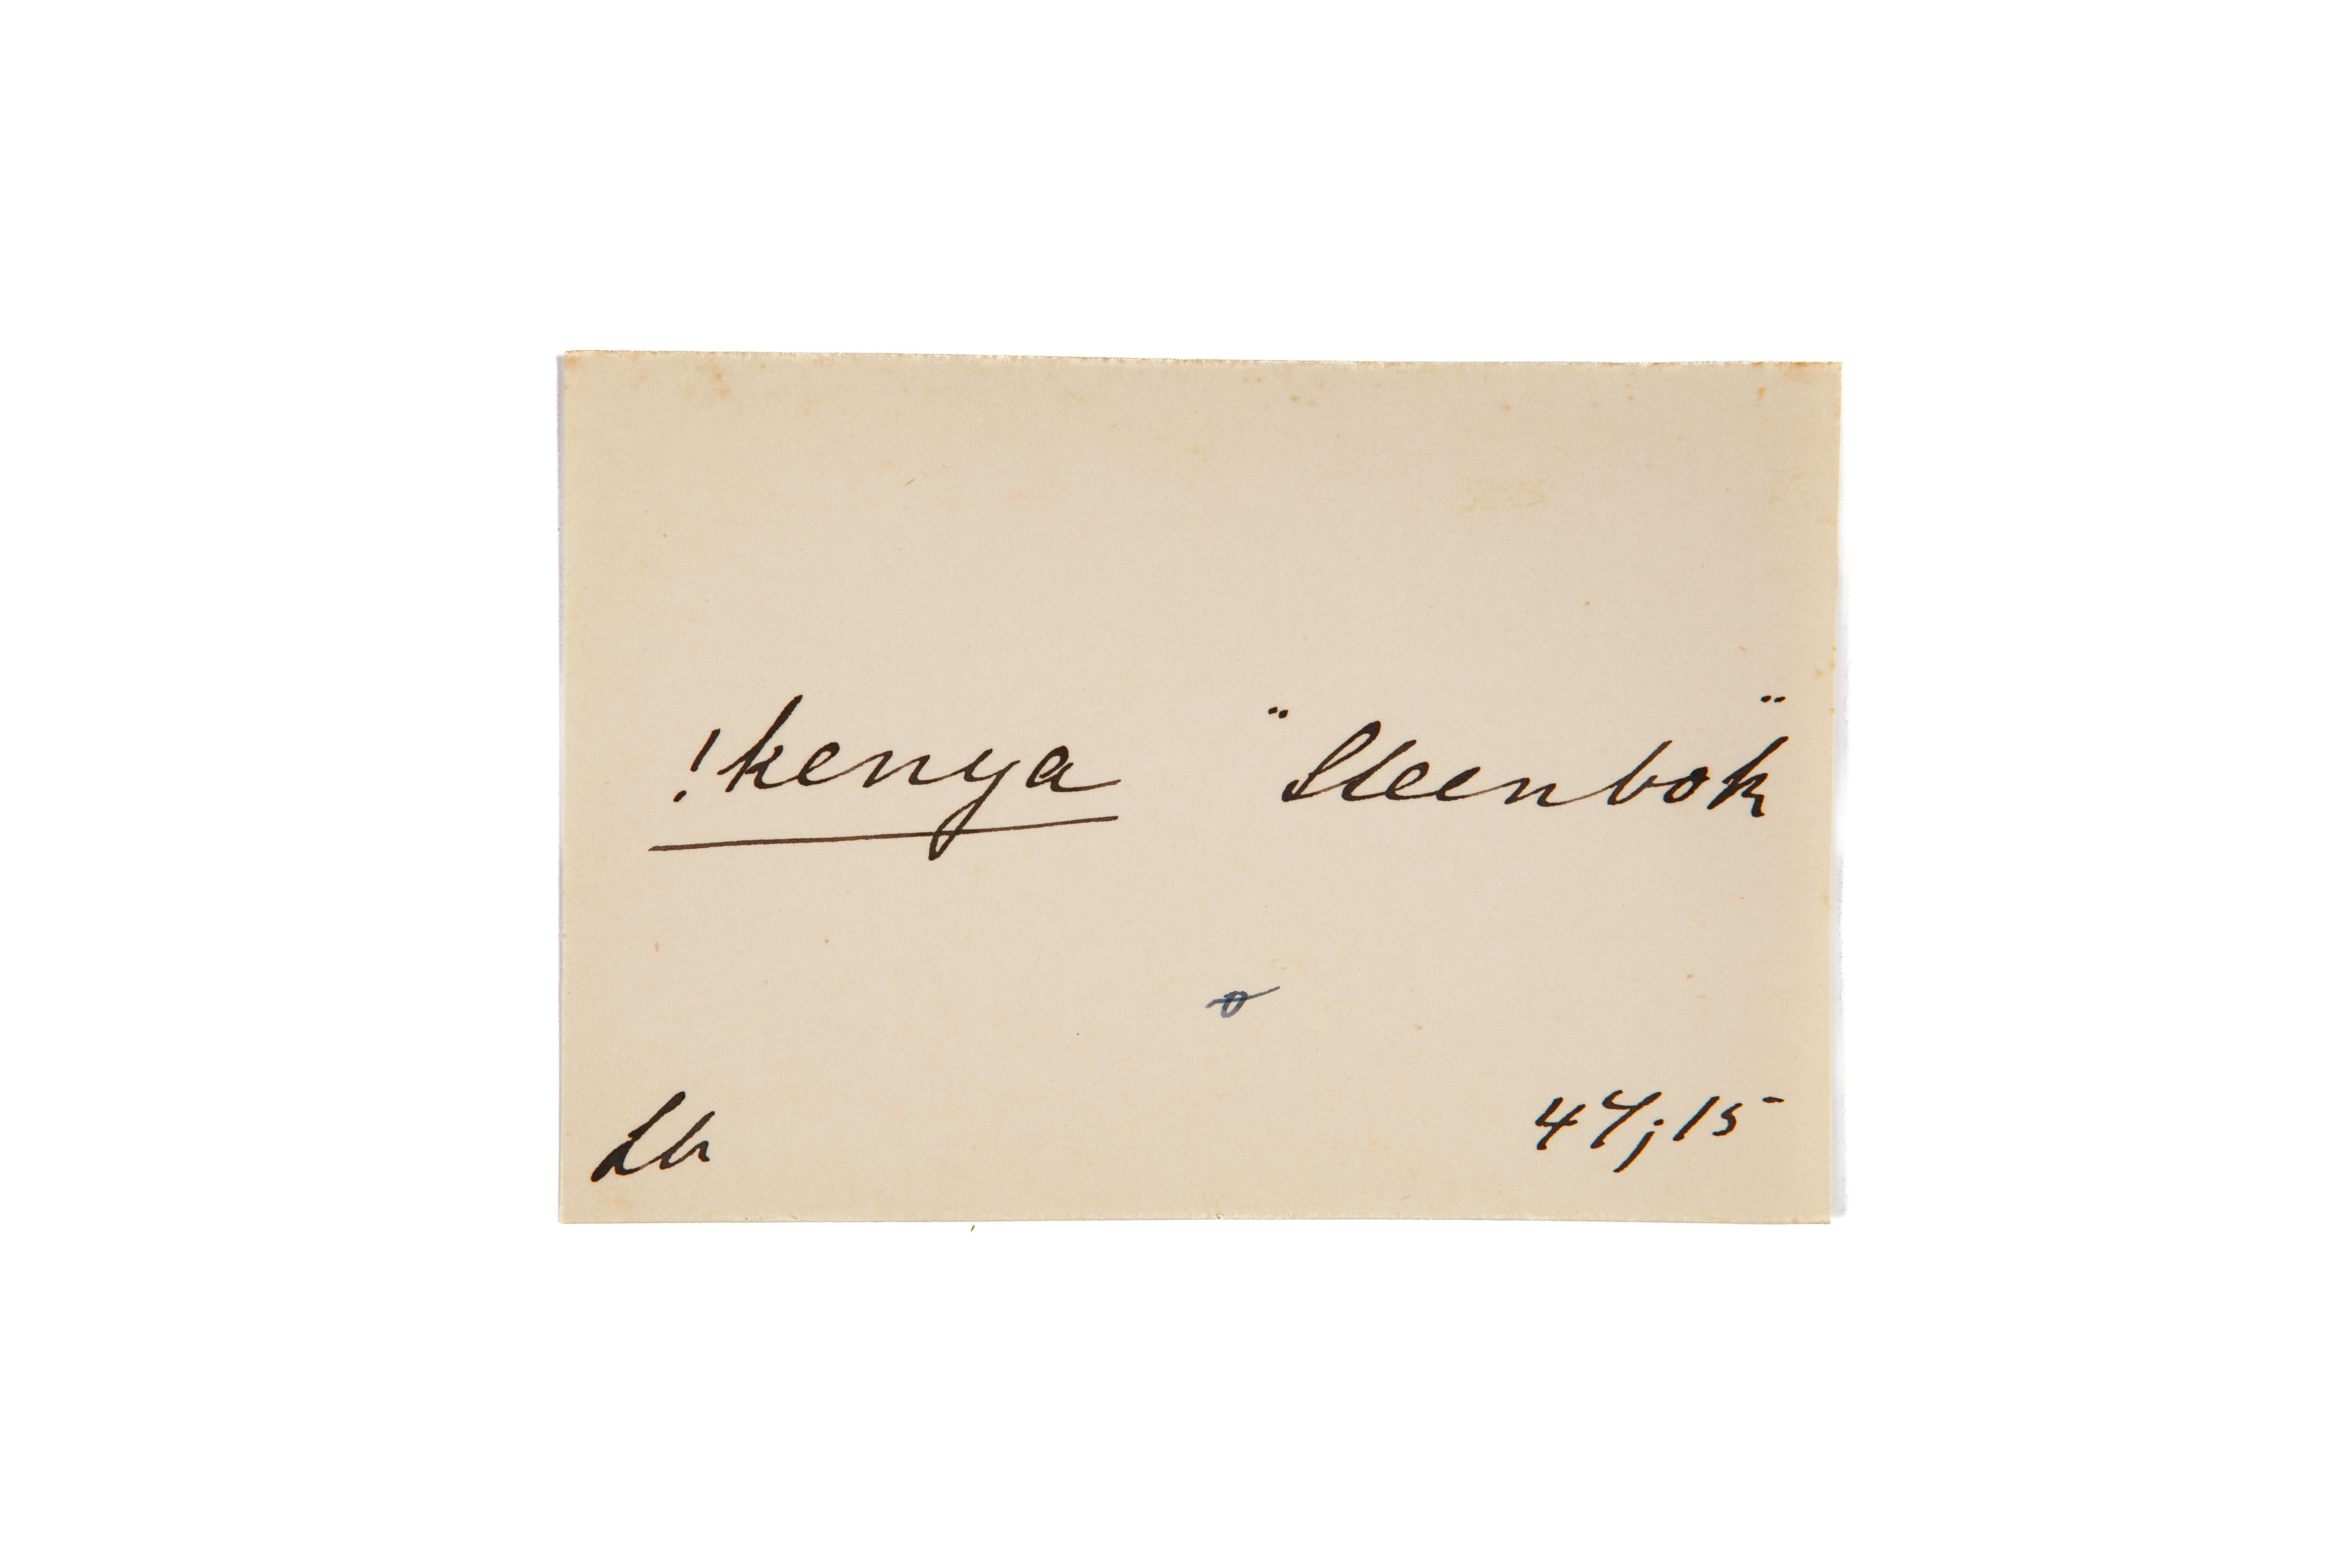 !kenya "Steenbok"
Lb
47;15